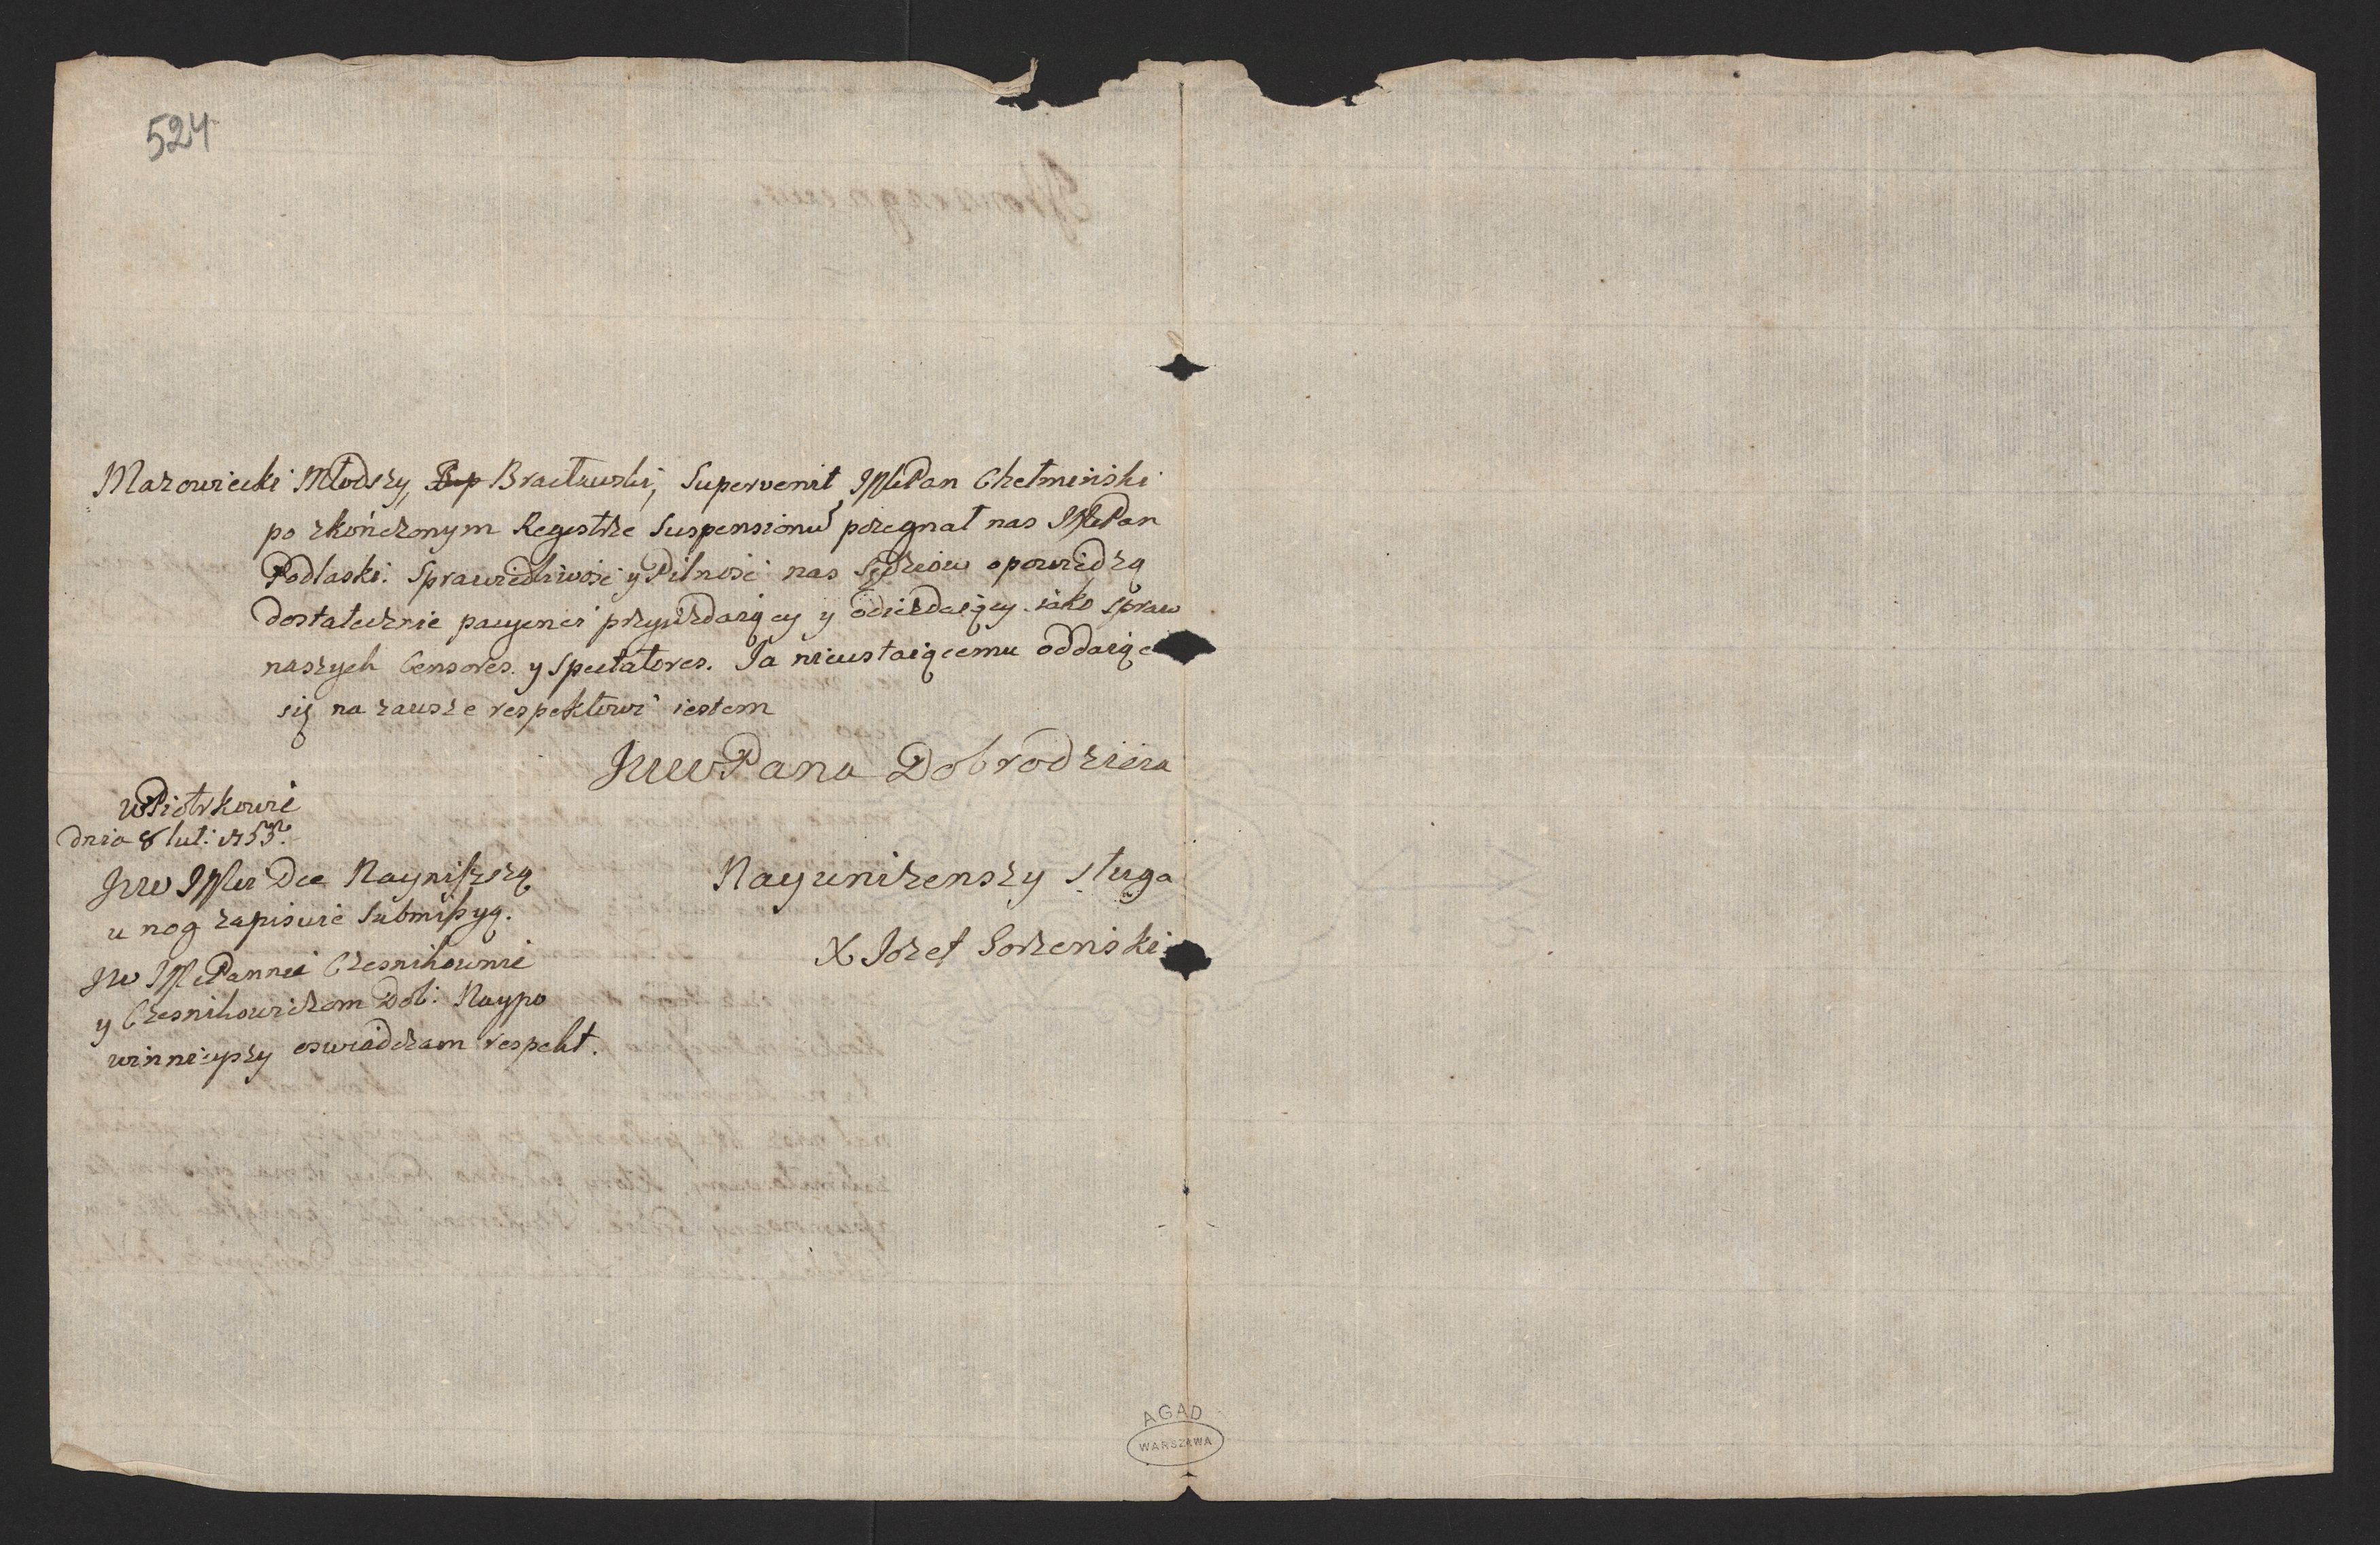 524
Mazowiecki Młodszy, Bracławski, Supervenit JMcPan Chełmiński
po zkończonym Regestrze Suspensionū pożegnał nas JMcPan
Podlaski. Sprawiedliwość y Pilność nas Sędziow opowiedzą
dostatecznie pacyenci przyieżdaiący y odieżdaiący. iako spraw
naszych Censores. y Spectatores. Ja nieustaiącemu oddaiąc
się na zawsze respektowi iestem
JWWPana Dobrodzieia
wPiotrkowie
dnia 8 lut: 1755.
JWW JMci Dce Nayniższą
u nog zapisuie Submissyą.
JW JMcPannie Czesnikownie
y Czesnikowiczom Dob: Naypo
winnieyszy oswiadczam respekt.
Nayuniżenszy sługa
X Jozef Gorzeński
AGAD
WARSZAWA